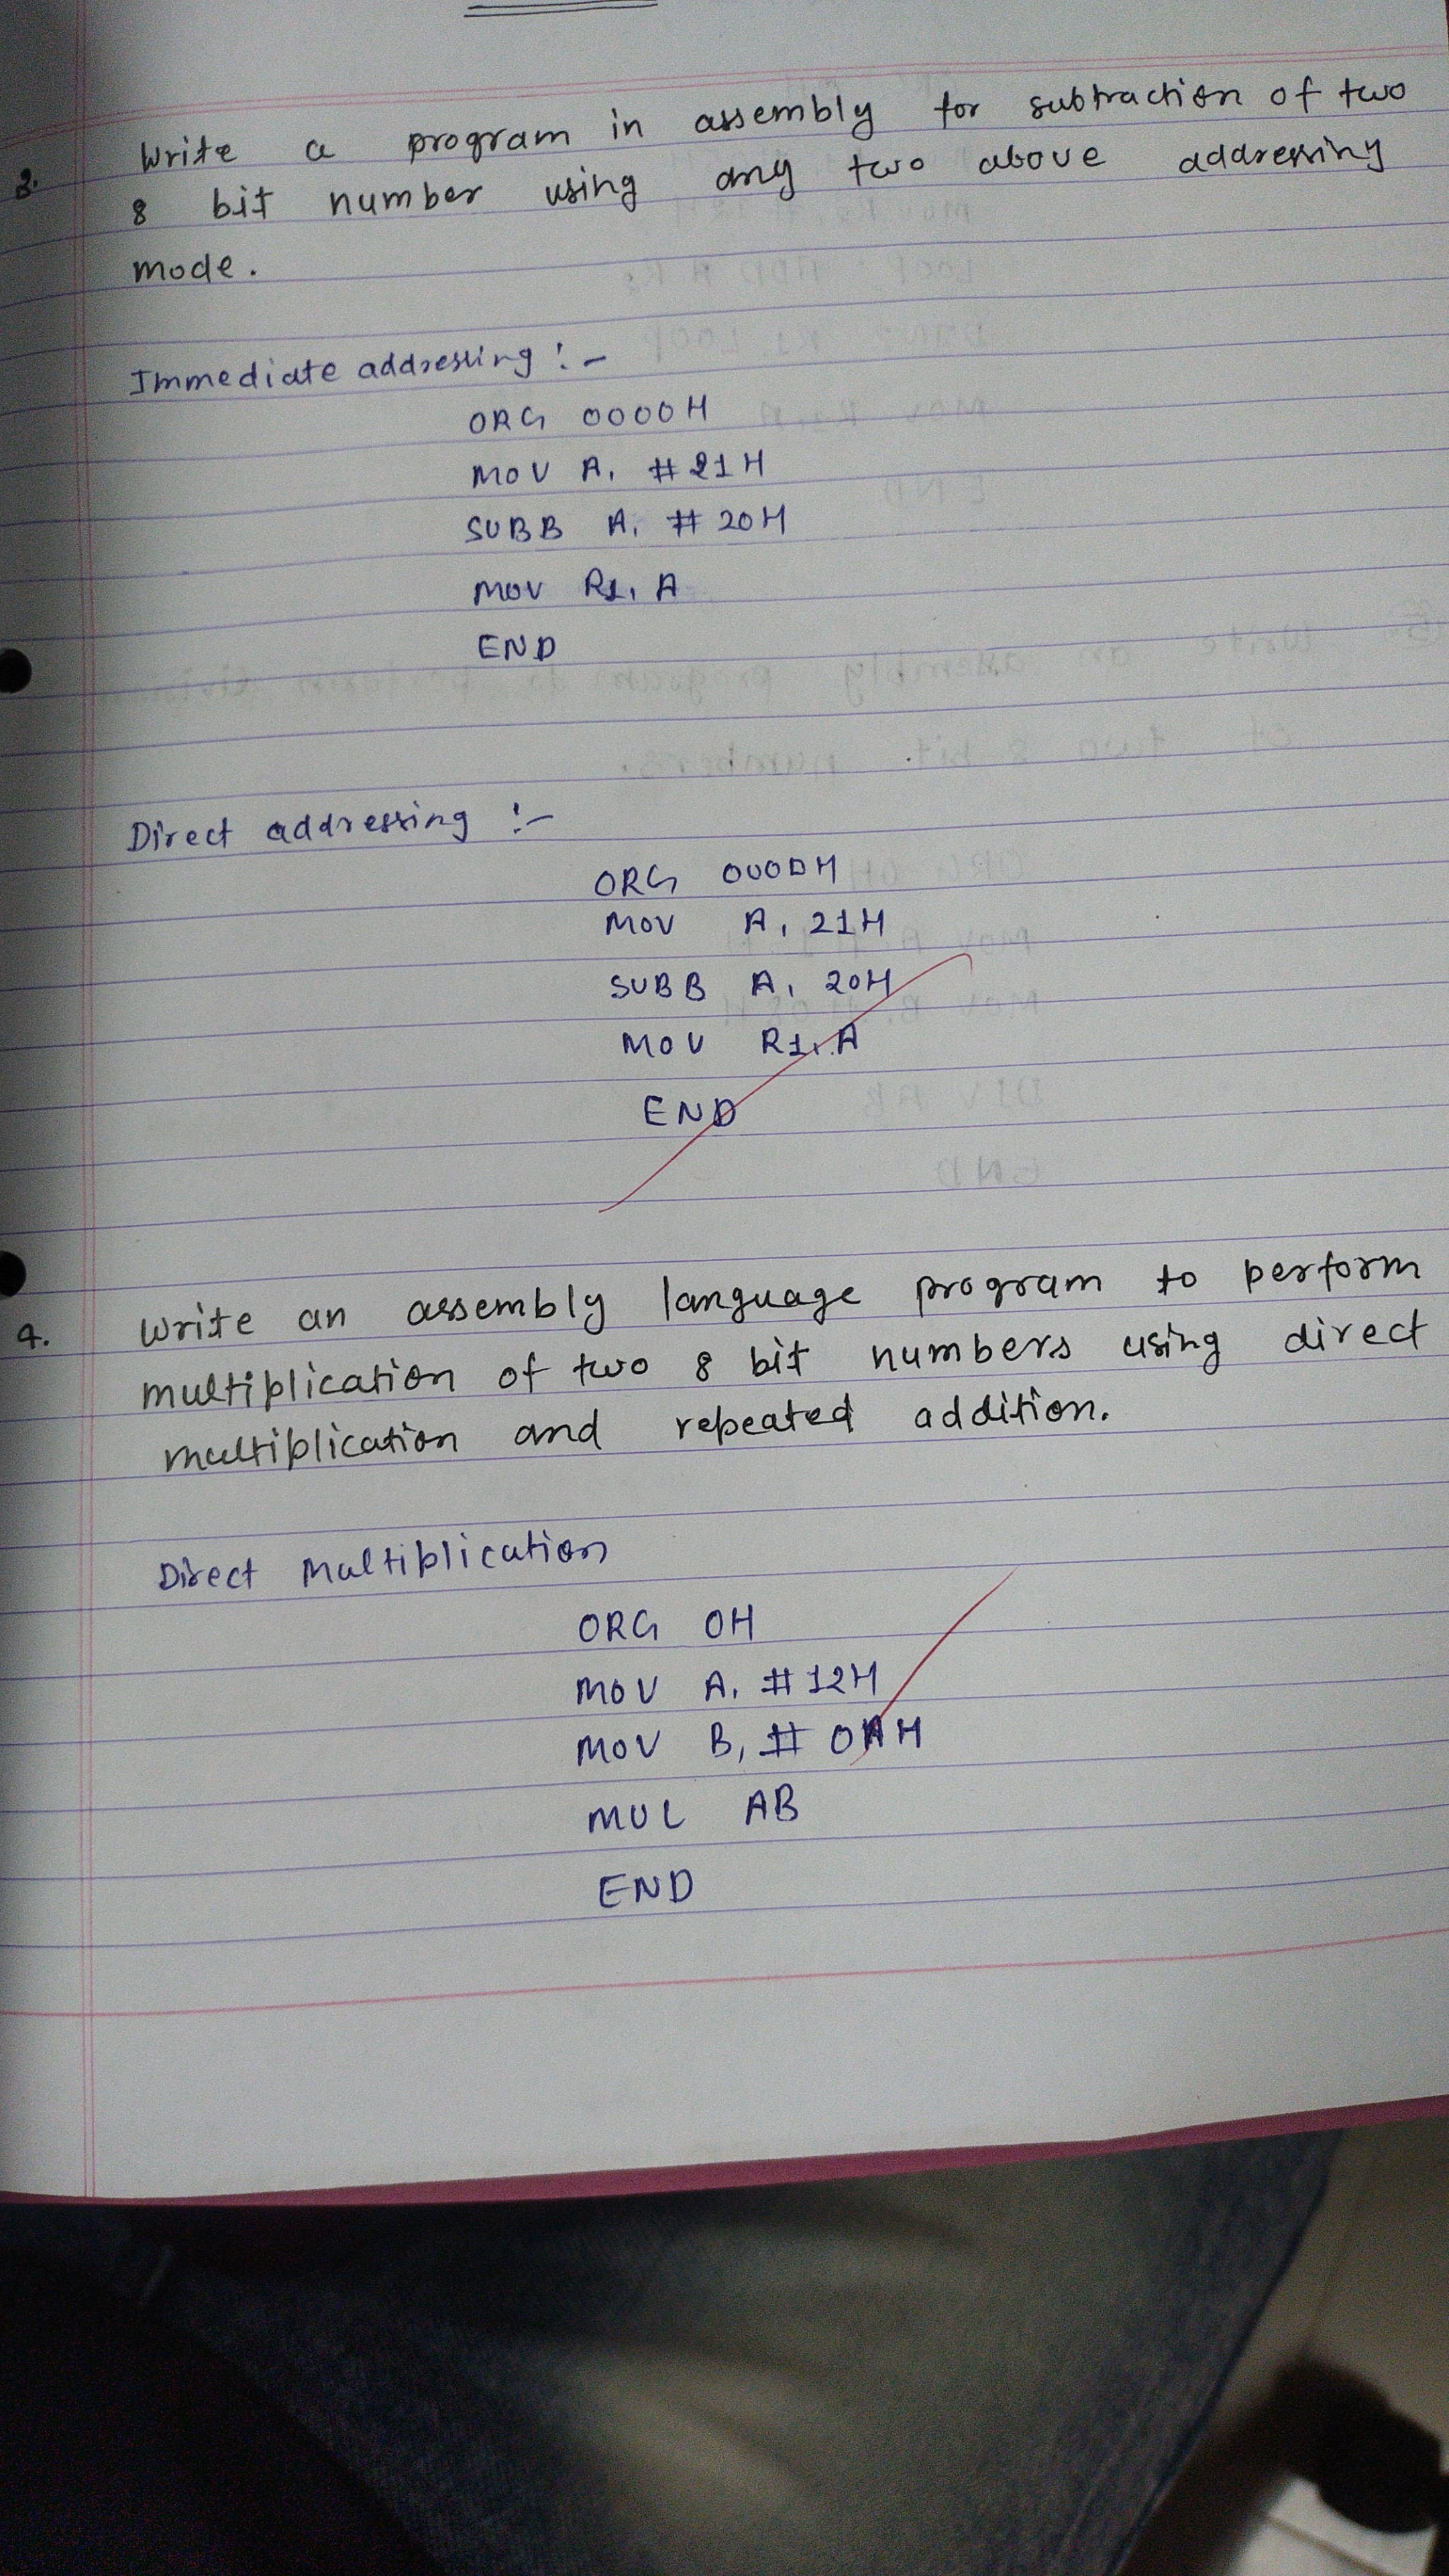 3. Write a program in assembly for subtraction of two
8 bit number using any two above addressing
mode.
Immediate addressing :-
ORG 0000H
MOV A, #21H
SUBB A, #20H
MOV R1, A
END
Direct addressing :-
ORG 0000H
MOV A, 21H
SUBB A, 20H
MOV R1, A
END
4. Write an assembly language program to perform
multiplication of two 8 bit numbers using direct
multiplication and repeated addition.
Direct Multiplication
ORG 0H
MOV A, #12H
MOV B, # 0AH
MUL AB
END